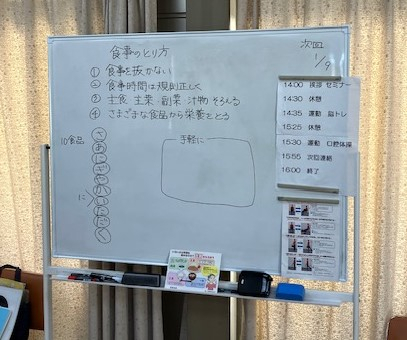 食事のとり方
次回
1/9
① 食事を抜かない
② 食事時間は規則正しく
③ 主食 主菜 副菜 汁物 そろえる
④ さまざまな食品から栄養をとる
10食品
さ
あ
に
ぎ
や
か
に
い
た
だ
く
手軽に
14:00 挨拶 セミナー
14:30 休憩
14:35 運動 脳トレ
15:25 休憩
15:30 運動 口腔体操
15:55 次回連絡
16:00 終了